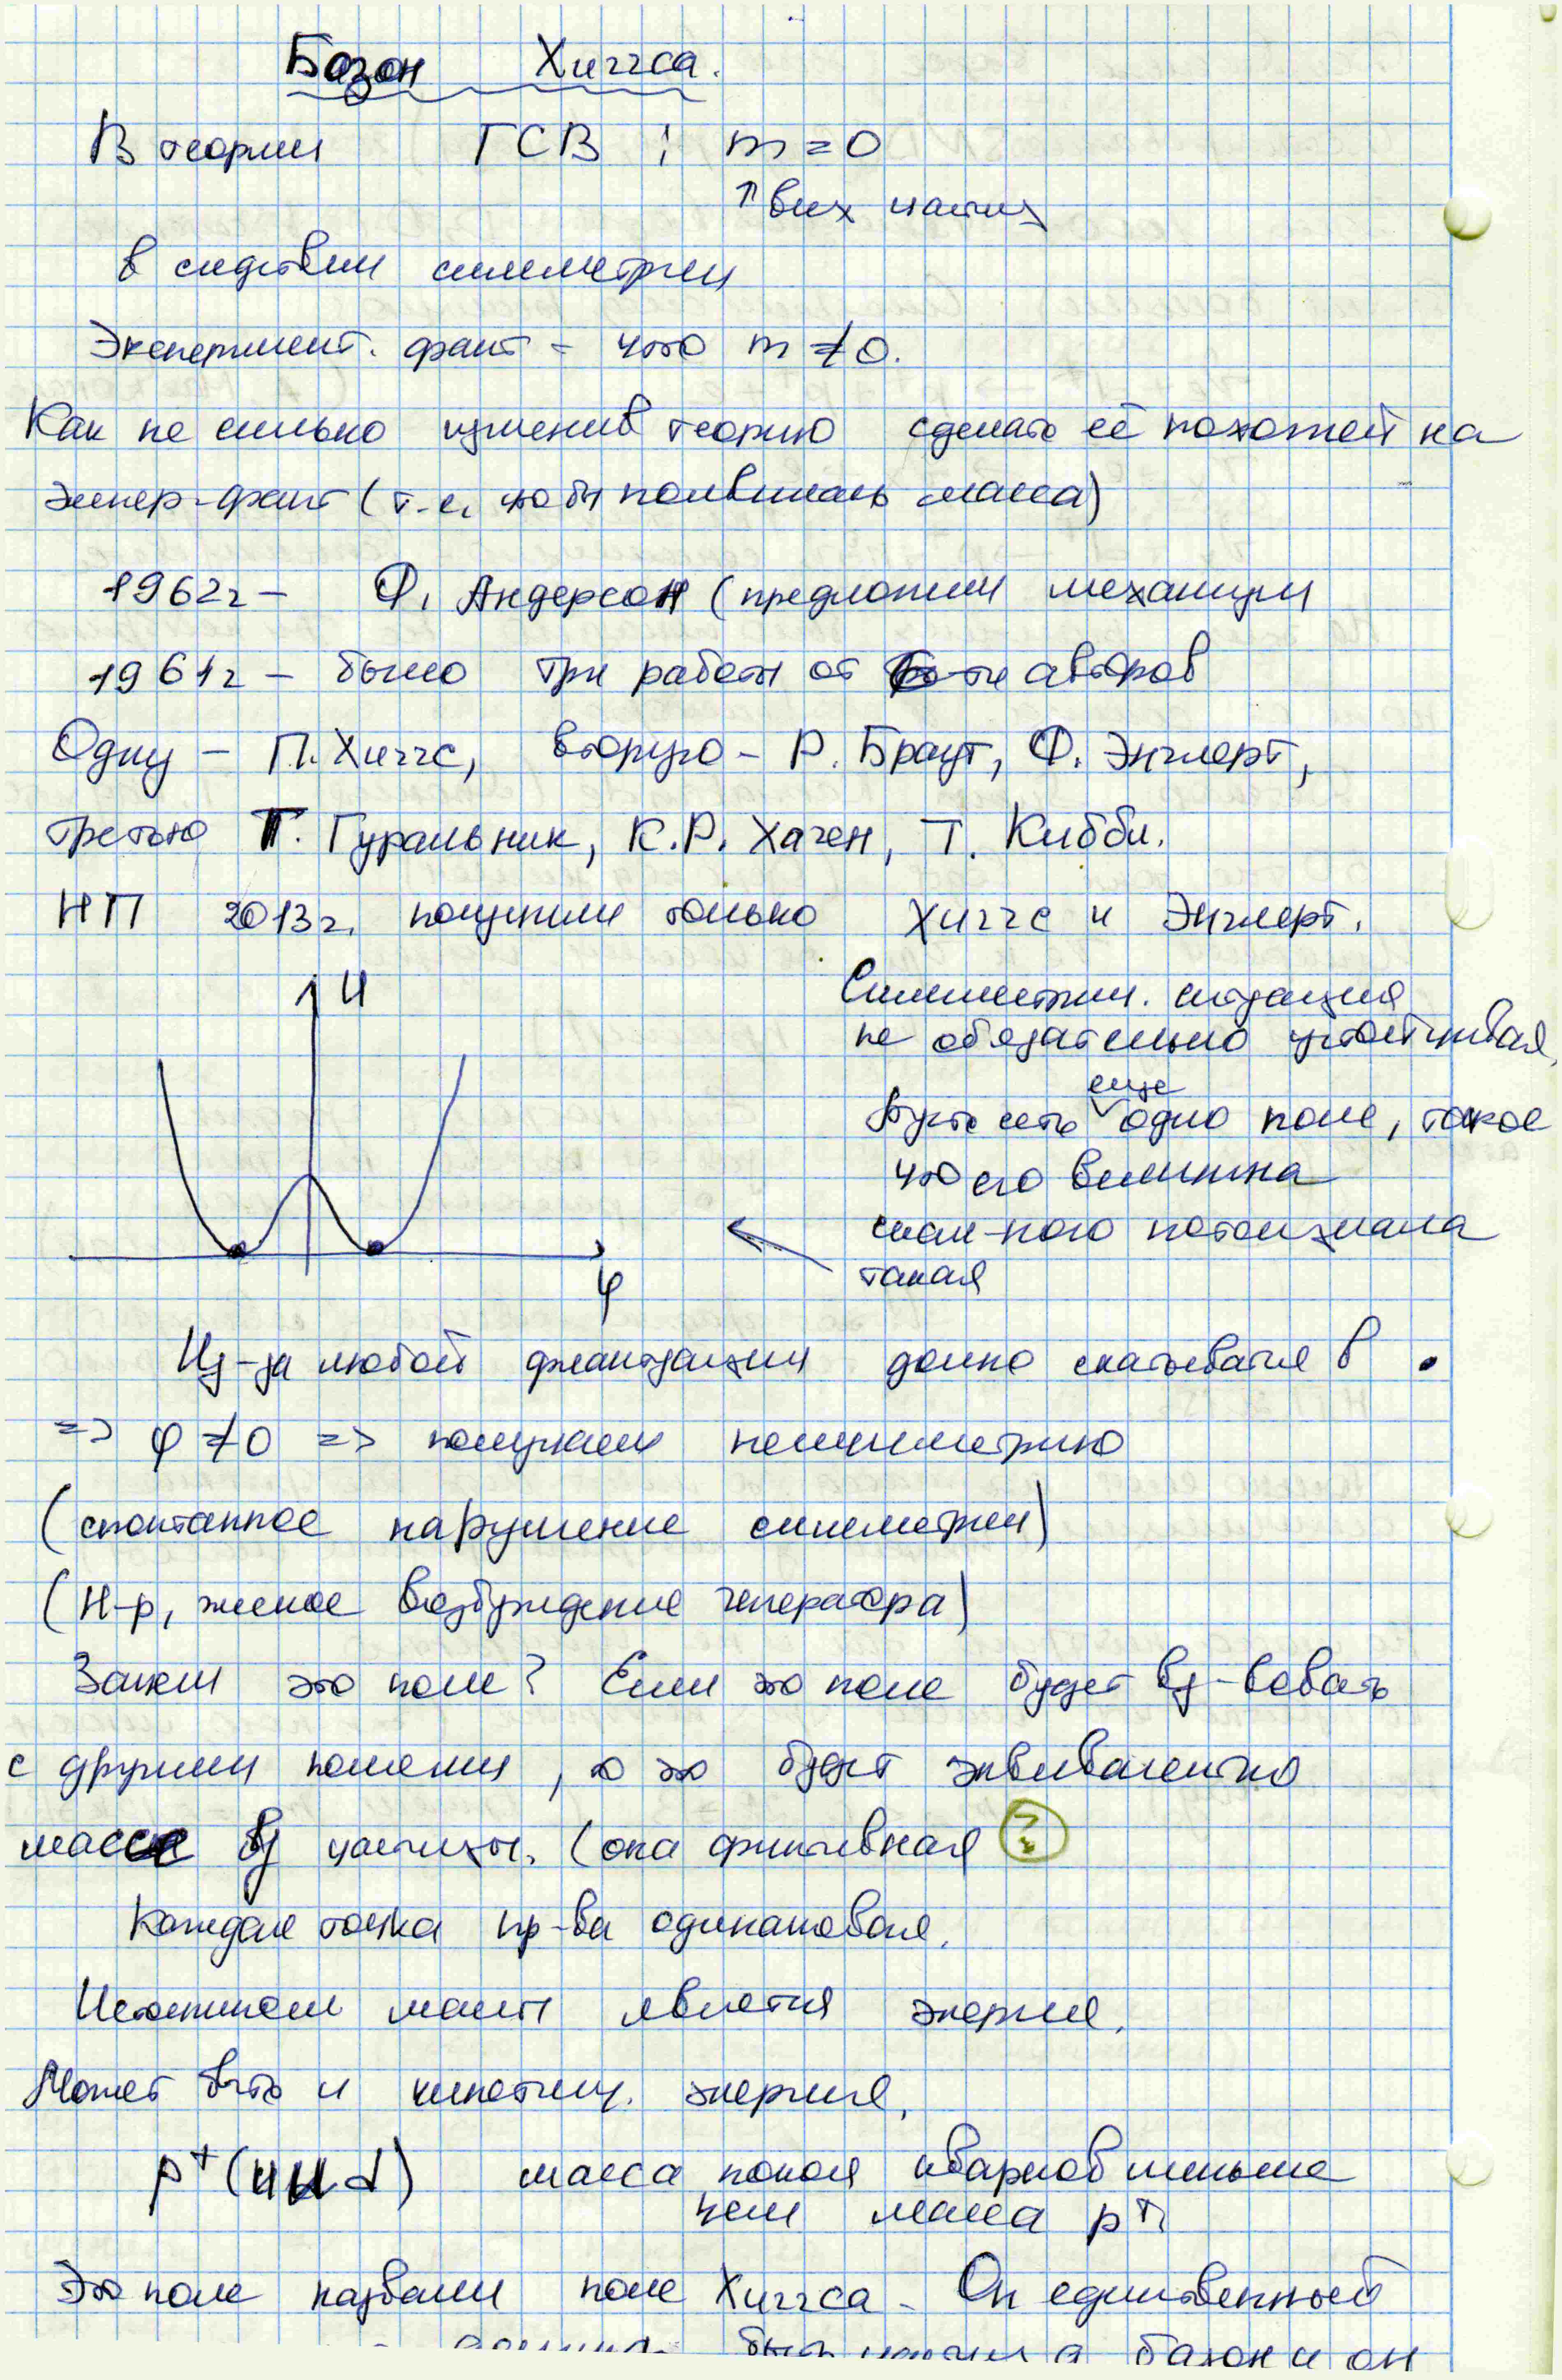 Базон Хиггса.
В теории ГСВ : m=0
↑ всех частиц
в следствии симметрии
Эксперимент. факт - что m≠0.
Как не сильно изменив теорию сделать её похожей на
экспер-факт (т.е. чтобы появилась масса)
1962г - Ф. Андерсон (предложил механизм
1964г - было три работы от 6-ти авторов
Одну - П. Хиггс, вторую - Р. Браут, Ф. Энглерт,
третью Г. Гуральник, К.Р. Хаген, Т. Киббл.
НП 2013г. получили только Хиггс и Энглерт.
U
Симметрич. ситуация
не обязательно устойчивая.
еще
Пусть есть одно поле, такое
что его величина
скал-ного потенциала
такая
φ
Из-за любой флюктуации должно скатываться в •
=> φ≠0 => получаем несимметрию
(спонтанное нарушение симметрии)
(Н-р, мягкое возбуждение генератора)
Зачем это поле? Если это поле будет вз-вовать
с другими полями, то это будет эквивалентно
массе частицы. (она фиктивная ?
Каждая точка пр-ва одинаковая.
Источником массы является энергия.
Может быть и кинетич. энергия.
p⁺(uud) масса покоя кварков меньше
чем масса p⁺.
Это поле назвали поле Хиггса. Он единственный
базон и он